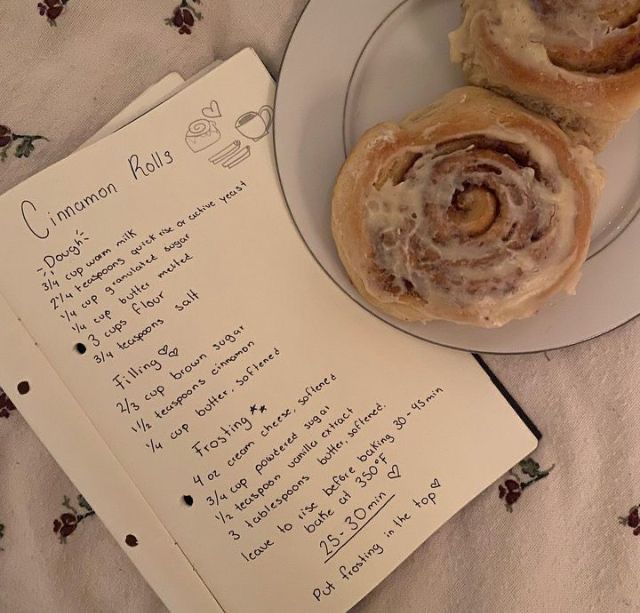 Cinnamon Rolls
-Dough-
3/4 cup warm milk
2 1/4 teaspoons quick rise or active yeast
1/4 cup granulated sugar
1/4 cup butter melted
3 cups flour
3/4 teaspoons salt
Filling
2/3 cup brown sugar
1 1/2 teaspoons cinnamon
1/4 cup butter, softened
Frosting
4 oz cream cheese, softened
3/4 cup powdered sugar
1/2 teaspoon vanilla extract
3 tablespoons butter, softened.
leave to rise before baking 30-45min
bake at 350°F
25-30min
Put frosting in the top